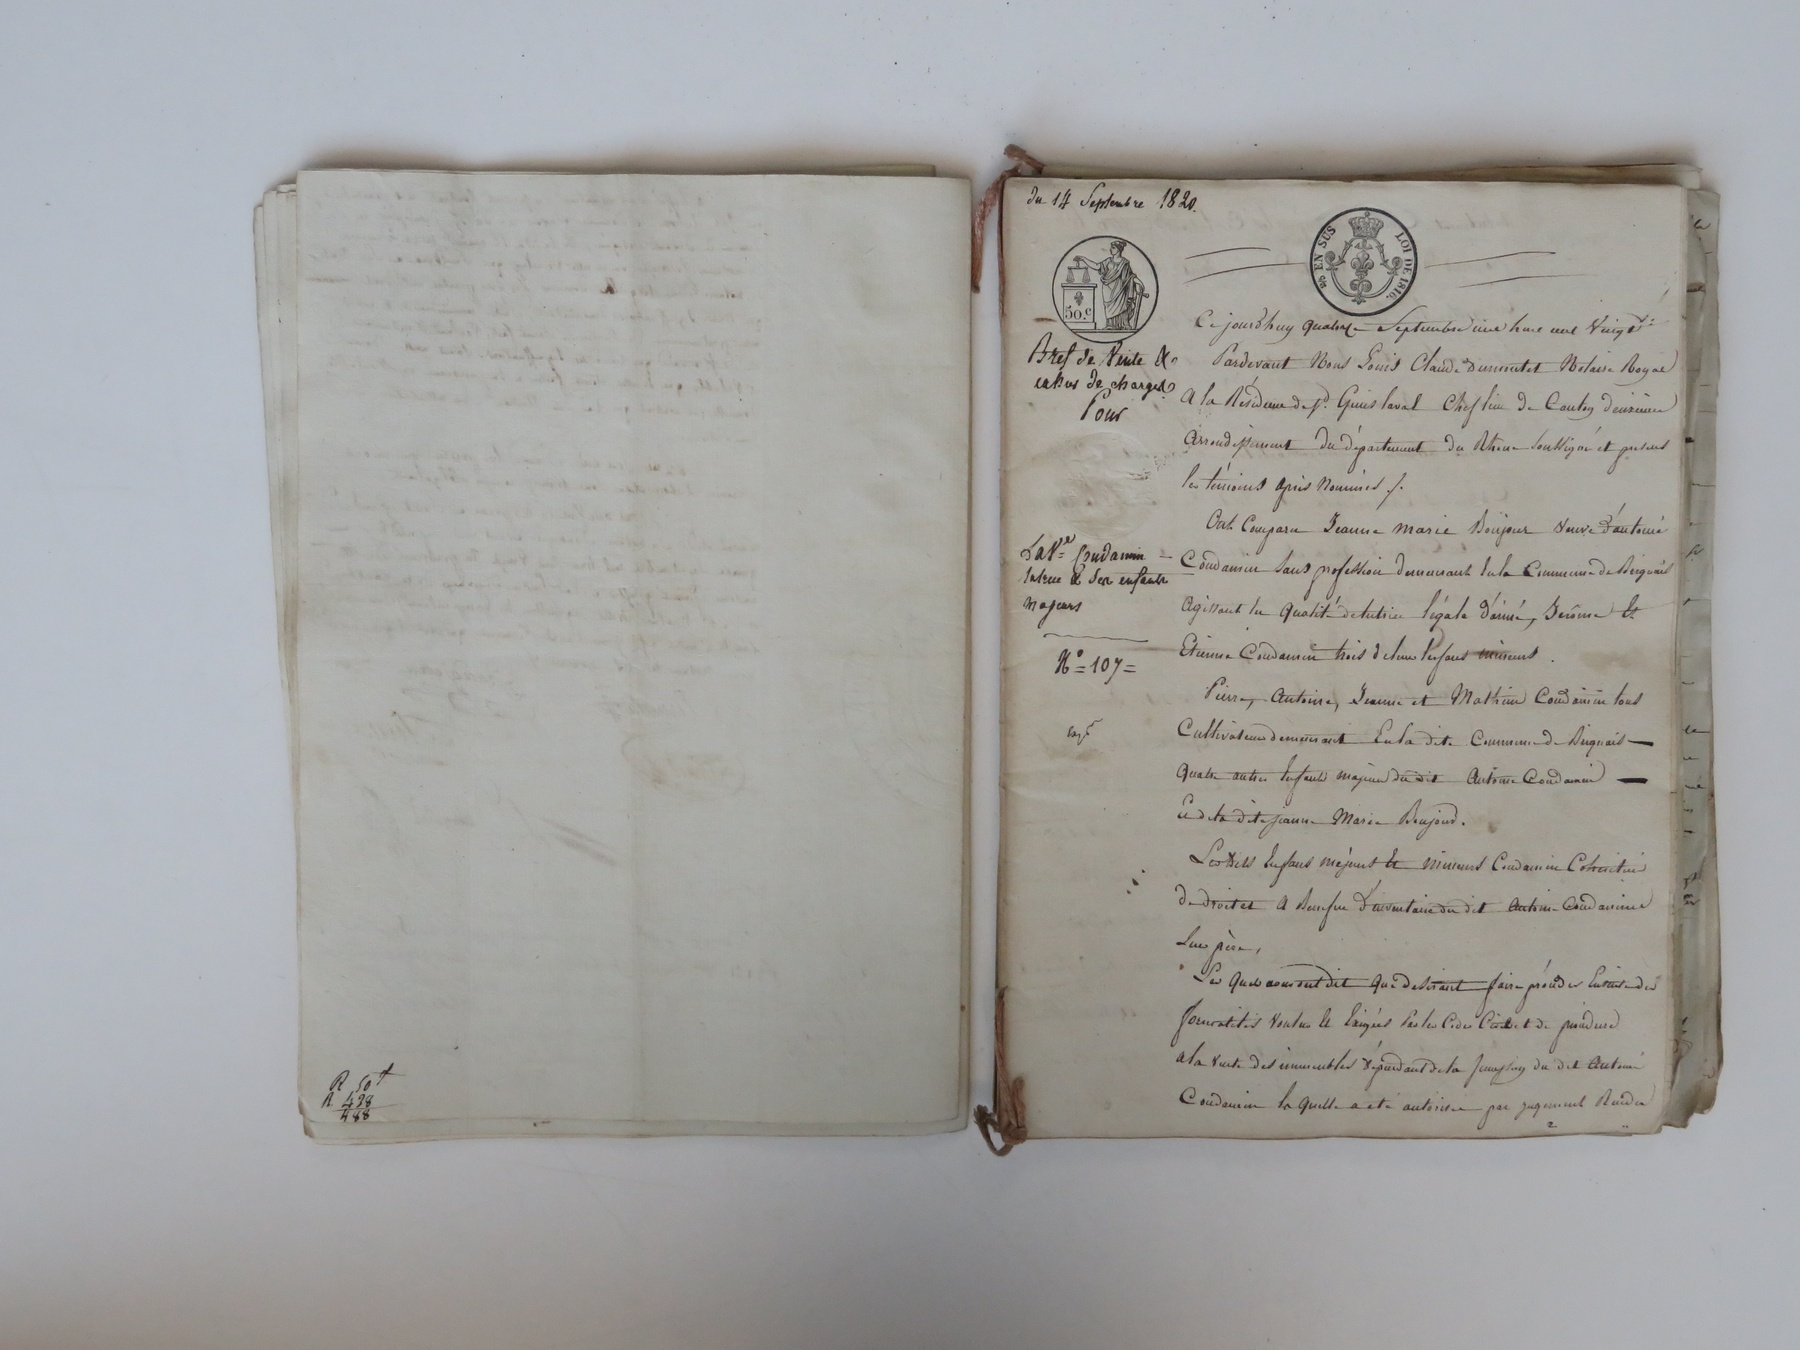 R 50 ct
R 438
488
du 14 Septembre 1820.
50.c
EN SUS LOI DE 1816.
Bref de Vente &
cahier de charges
Pour
La Ve. Condamin
tutrice & Ses enfants
majeurs
N° = 107 =
Ce jourdhuy quatorze Septembre mil huit cent Vingt
Pardevant Nous Louis Claude Dumortet Notaire Royal
A la Résidence de St. Genis laval Chef lieu de Canton deuxieme
Arrondissement du département du Rhône Soussigné et presens
les témoins après Nommés /.
Ont Comparu Jeanne marie Boujour veuve d'antoine
Condamin Sans profession demeurant En la Commune de Brignais
Agissant En Qualité de tutrice légale d'aimé, Jerôme Et
Etienne Condamin trois de leurs Enfans mineurs.
Pierre, Antoine, Jeanne et Mathieu Condamin tous
Cultivateurs demeurant En la dite Commune de Brignais
Quatre autres Enfants majeurs du dit Antoine Condamin
Et de la dite jeanne Marie Boujour.
Les dits Enfans majeurs Et mineurs Condamin Cohéritiers
de droit et A Benefice D'inventaire du dit Antoine Condamin
Leur père,
Les Quels nous ont dit Que desirant faire procéder Ensuite des
formalités voulues Et Exigées Par les Codes Civil et de procédure
a la vente des immeubles dépendant de la succession du dit Antoine
Condamin la Quelle a été autorisée par jugement Rendu